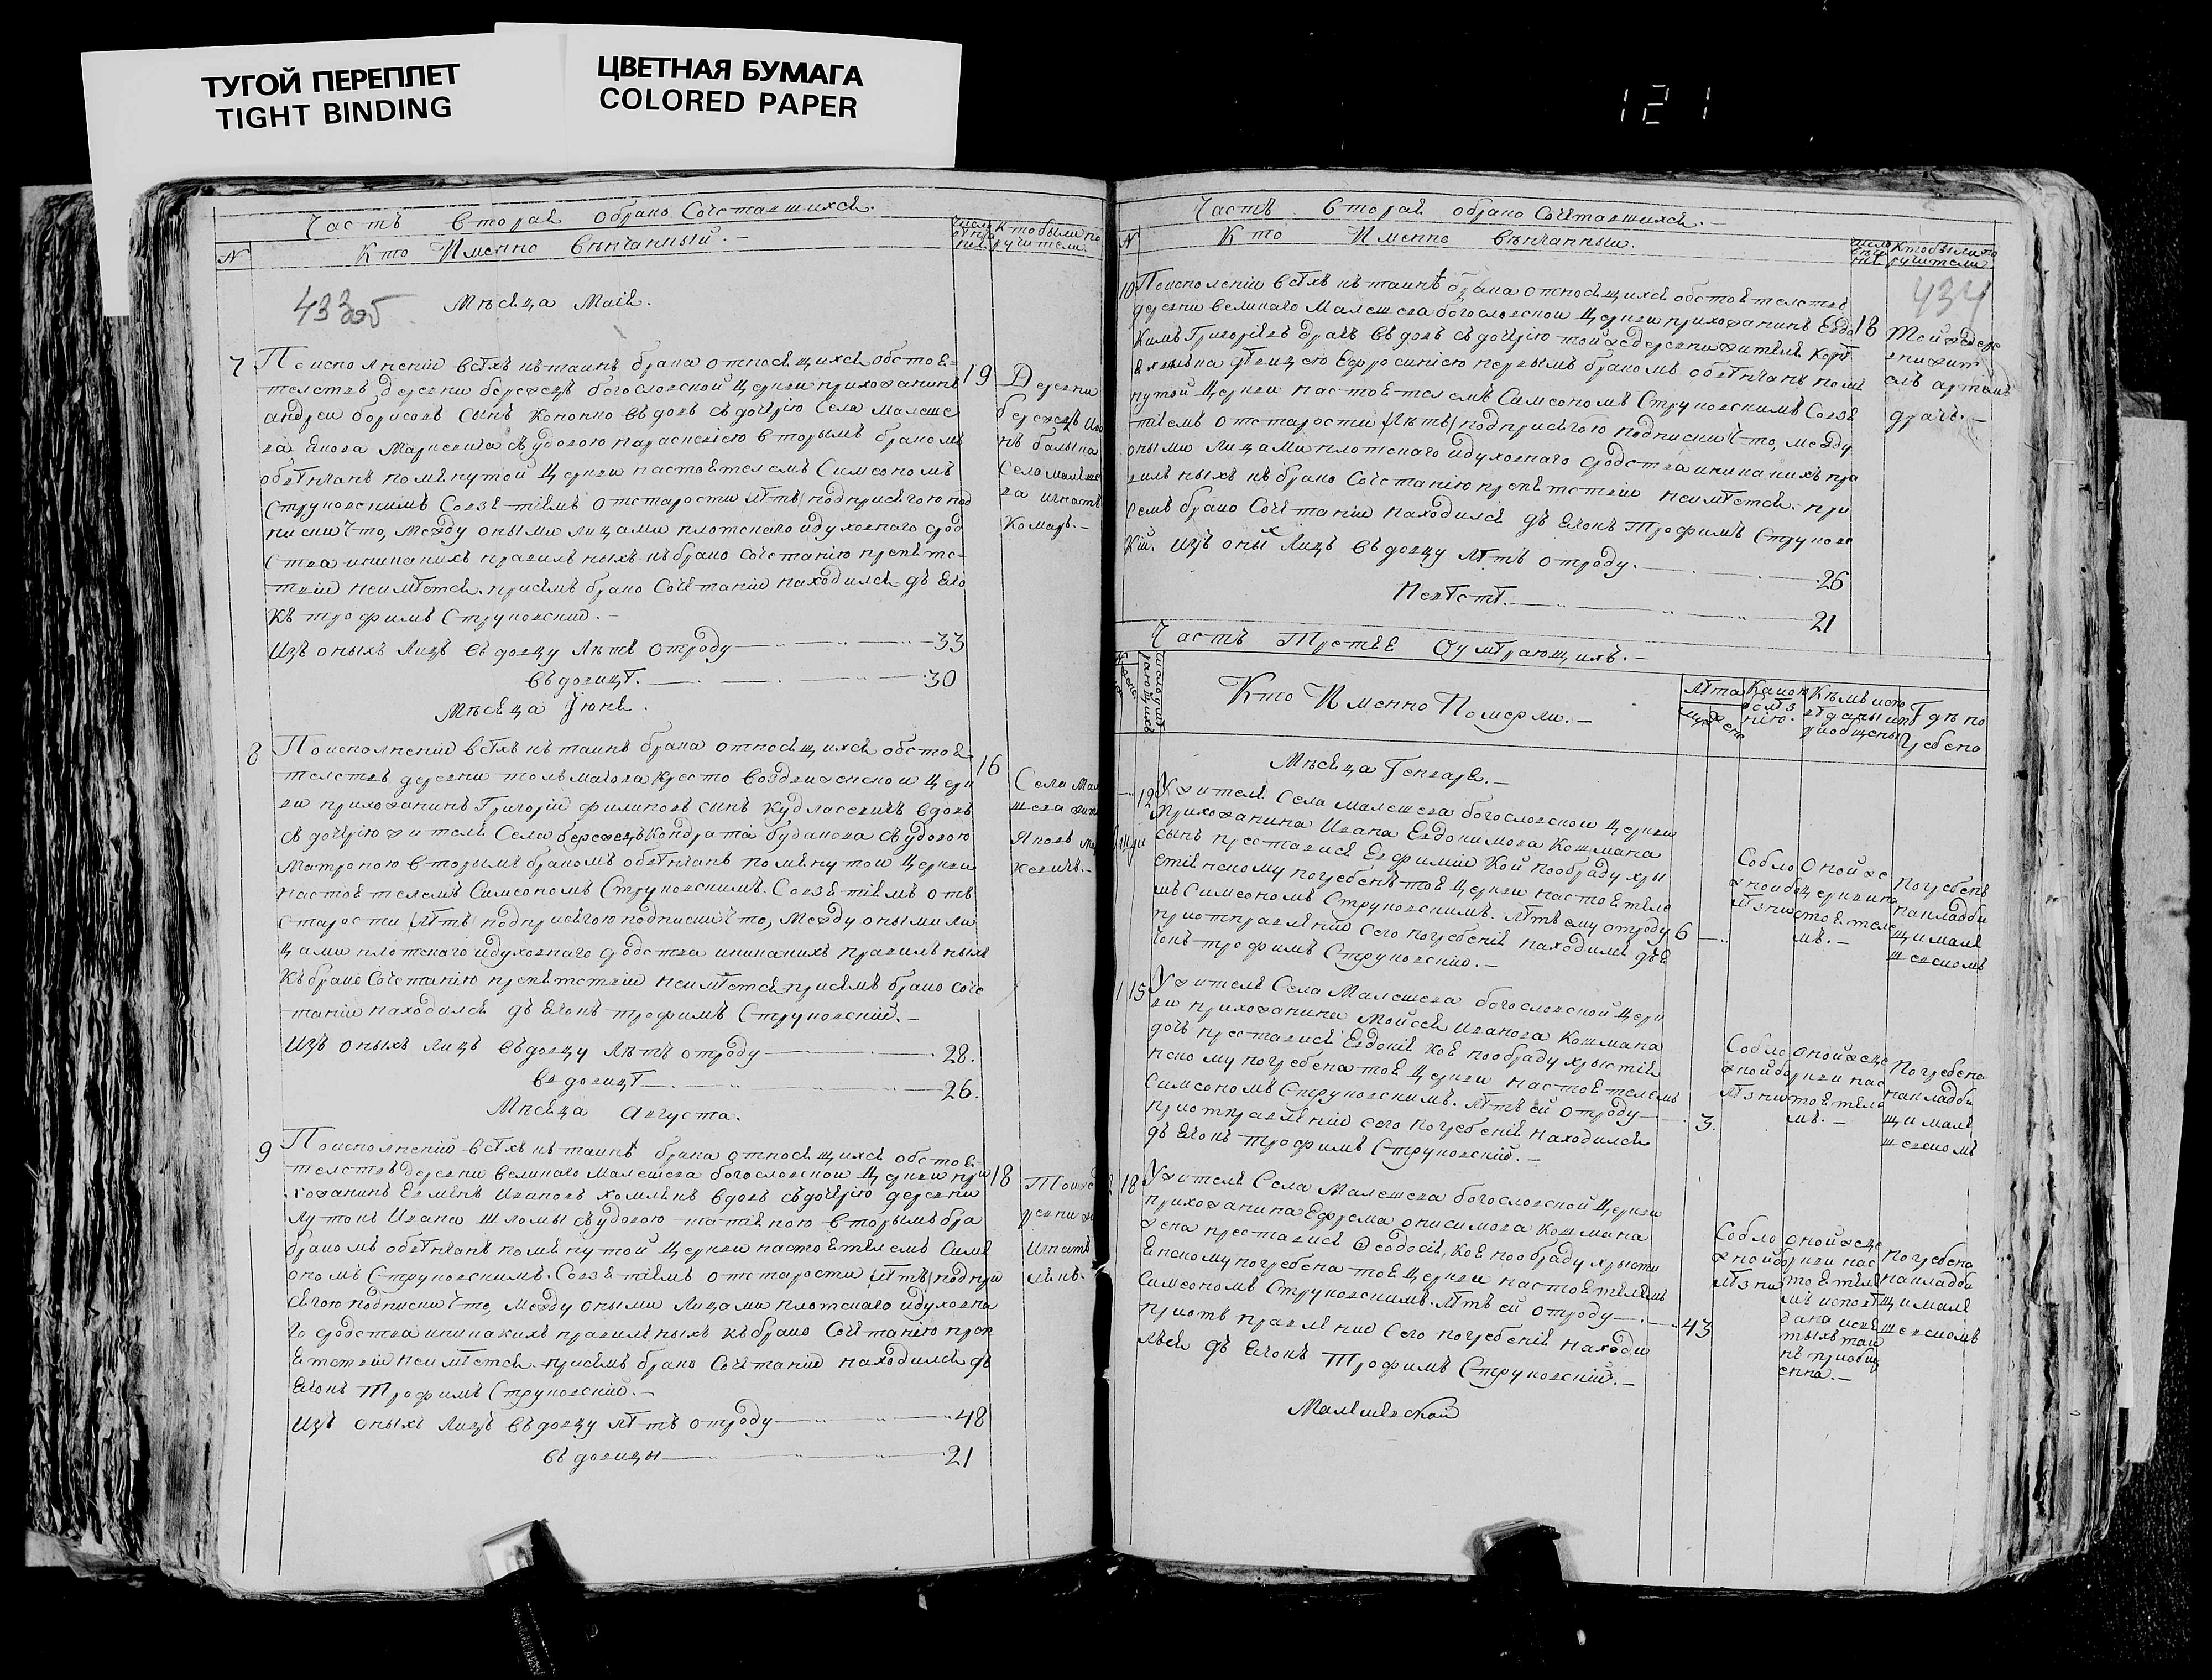 ТУГОЙ ПЕРЕПЛЕТ
TIGHT BINDING
ЦВЕТНАЯ БУМАГА
COLORED PAPER
121
Часть вторая обрако сочетавшихся.
N
Кто Именно Вѣнчанный. –
Кто были по
ручители.
433
Мѣсяца Маія.
7
Поисполненіи всѣхъ къ таинѣ брака относящихся обстоя=
телствъ деревни бережецъ богословской Церкви прихожанинъ
19
андреи борисовъ сынъ Конопко въдовъ съ дочерію Села малеше
ва Якова Маркевича съ удовою параскевіею вторымъ бракомъ
обвѣнчанъ помянутой Церкви настоятелемъ Симеономъ
Струковскимъ Совзятіемъ отстарости лѣтъ подприсягою под
писки что, между оными лицами плотскаго идуховнаго срод
ства ининакихъ правильныхъ къбрако сочетанію препятс=
твіи неимѣется. присемъ брако Сочетаніи находился дьячо
къ трофимъ Струковскій. –
Изъ оныхъ лицъ въдовцу лѣтъ отроду 33
въдовицѣ. 30
Деревни
бережецъ Ива
нъ балыка
Села малеше
ва игнатъ
Комаръ. –
Мѣсяца Іюня.
8
Поисполненіи всѣхъ къ таинѣ брака относящихся обстоя
телствъ деревни толмачова кресто воздвиженской Церк
16
ви прихожанинъ Григорій филиповъ сынъ Кудласевичъ вдовъ
съ дочерію жителя Села бережецъ Кондрата буданова съ удовою
Матроною вторымъ бракомъ обвѣнчанъ помянутой Церкви
настоятелемъ Симеономъ Струковскимъ. Совзятіемъ отъ
Старости лѣтъ подприсягою подписки что, между оными ли
цами плотскаго идуховнаго сродства ининакихъ правильныхъ
Къбрако Сочетанію препятствіи неимѣется присемъ брако соче
таніи находился дьячокъ трофимъ Струковскій. –
Изъ оныхъ лицъ въдовцу лѣтъ отроду 28.
вдовицѣ 26.
Села Мал
шева жит
Яковъ мар
кевичъ. –
Мѣсяца Августа.
9
Поисполненіи всѣхъ къ таинѣ брака относящихся обстоя=
телствъ деревни великаго малешева богословской Церкви при
18
хожанинъ Ивановъ вдовъ съдочерію деревни
Лутокъ Ивана Шломы съудовою татіяною вторымъ бра
бракомъ обвѣнчанъ помянутой Церкви настоятелемъ Симе
ономъ Струковскимъ. Совзятіемъ отстарости лѣтъ подпри
сягою подписки что, между оными лицами плотскаго идуховна
го сродства ининакихъ правильныхъ къбрако Сочетанію преп
ятствіи неимѣется. присемъ брако Сочетаніи находился дь
ячокъ Трофимъ Струковскій. –
Изъ оныхъ лицъ въдовцу лѣтъ отроду 48
въдовицы 21
Тойже
ревни жи
Игнатъ
Часть вторая обрако сочетавшихся. –
N
Кто Именно Вѣнчанныи.
Кто были по
ручители
434
10
Поисполненіи всѣхъ къ таинѣ брака относящихся обстоятелствъ
деревни великаго Малешева богословской Церкви прихожанинъ Евдо
18
кимъ Григорьевъ драчъ въдовъ съдочерію тойже деревни жителя
дѣвицею Ефросиніею первымъ бракомъ обвѣнчанъ помя
нутой Церкви настоятелемъ Симеономъ Струковскимъ Совзя
тіемъ отстарости лѣтъ подприсягою подписки что, между
оными лицами плотскаго идуховнаго сродства ининакихъ пра
вильныхъ къбрако Сочетанію препятствіи неимѣется. при
семъ брако Сочетаніи находился дьячокъ трофимъ Струковс
кій. Изъ оныхъ лицъ въдовцу лѣтъ отроду. 26
Невѣстѣ. 21
Тойждере
вни жит
ель артемъ
драчъ. –
Часть Третія Оумѣрающихъ. –
Кто Именно Померли. –
лѣта
Какою
болѣз
нію.
Кѣмъ испо
вѣданы ип
риобщены
Гдѣ по
гребено
Мѣсяца Генваря. –
12
Ужителя Села малешева богословской Церкви
прихожанина Ивана Евдокимова Кошмана
сынъ преставися Евфимій кой пообряду хры
стіянскому погребенъ тоя Церкви настоятеле
мъ Симеономъ Струковскимъ. лѣтъ ему отроду 6
приотправленіи сего погребенія находился дья
чокъ трофимъ Струковскій. –
Оной же
церкви на
стоятеле
мъ. –
Погребенъ
накладби
щи мале
шевскомъ
1 15
Ужителя Села Малешева богословской Церк
ви прихожанина Мойсея Иванова Кошмана
дочь преставися Евдокія коя пообряду хрыстія
нскому погребена тоя Церкви настоятелемъ
Симеономъ Струковскимъ. лѣтъ ей отроду 3.
приотправленіи сего погребенія находился
дьячокъ трофимъ Струковскій. –
оной же це
ркви нас
тоятеле
мъ. –
Погребена
накладби
щи мале
шевскомъ
2 18
Ужителя Села Малешева богословской Церкви
прихожанина Ефрема онисимова Кошмана
жена преставися Ѳеодосія, коя пообряду хрысти
янскому погребена тоя Церкви настоятелемъ
Симеономъ Струковскимъ. лѣтъ ей отроду 43
приотъ правленіи Сего погребенія находи
лься дьячокъ Трофимъ Струковскій. –
оной же це
ркви нас
тоятеле
мъ исповѣ
дана исвя
тыхъ таи
нъ приобщ
енна. –
погребена
накладби
щи мале
шевскомъ